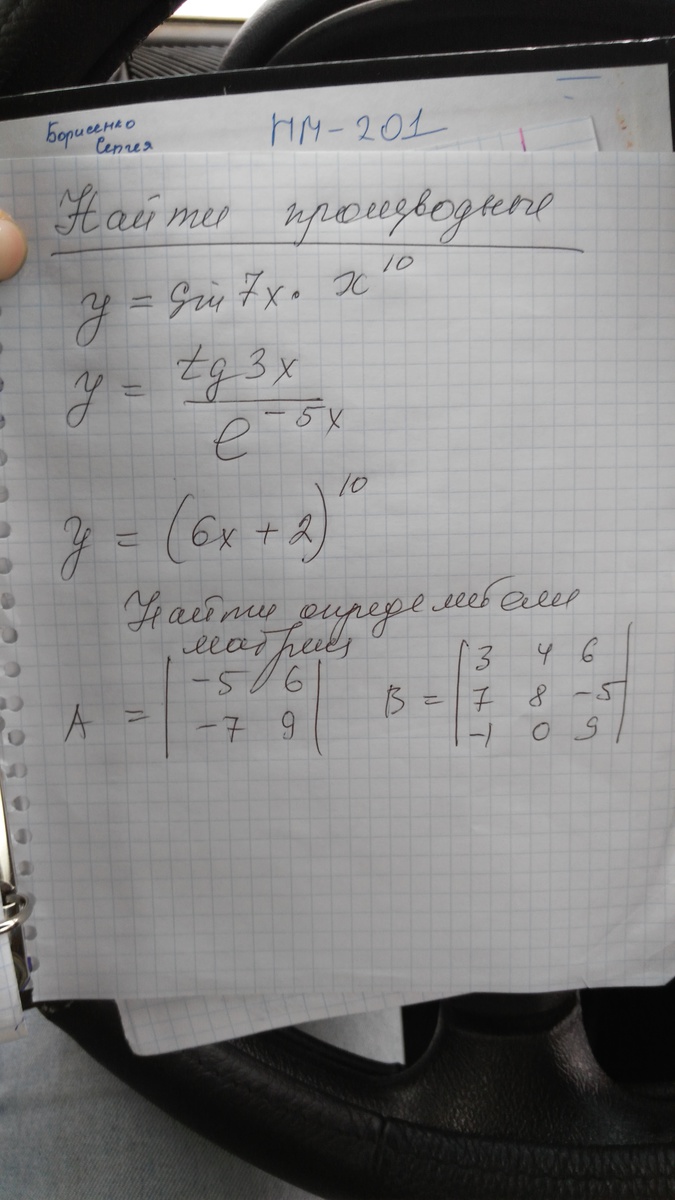 Борисенко
Сергея
ПМ-201
Найти производные
y = sin 7x · x^10
y = tg 3x / e^-5x
y = (6x + 2)^10
Найти определители
матриц
A = | -5 6 |
| -7 9 |
B = | 3 4 6 |
| 7 8 -5 |
| -1 0 9 |